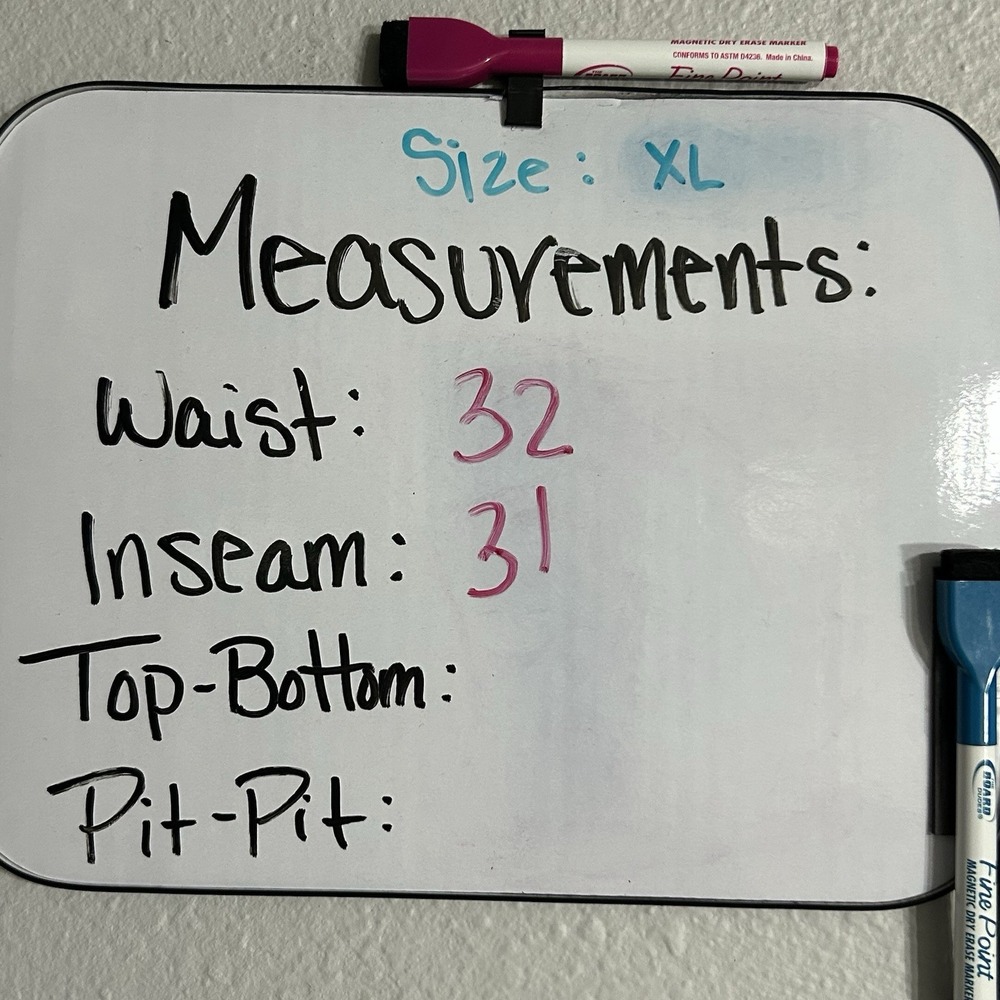 MAGNETIC DRY ERASE MARKER
CONFORMS TO ASTM D4236. Made in China.
Fine Point
Size: XL
Measurements:
Waist: 32
Inseam: 31
Top-Bottom:
Pit-Pit:
THE BOARD DUDES®
Fine Point
MAGNETIC DRY ERASE MARKER